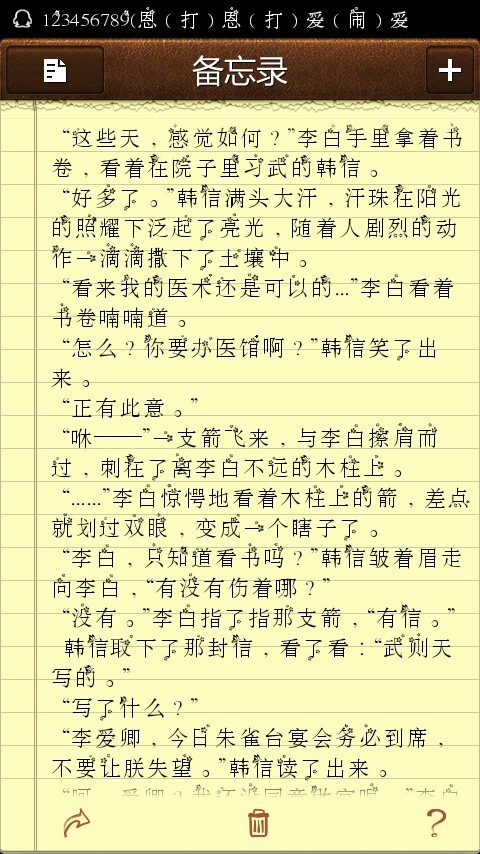 123456789(恩（打）恩（打）爱（闹）爱
备忘录
“这些天，感觉如何？”李白手里拿着书
卷，看着在院子里习武的韩信。
“好多了。”韩信满头大汗，汗珠在阳光
的照耀下泛起了亮光，随着人剧烈的动
作一滴滴撒下了土壤中。
“看来我的医术还是可以的...”李白看着
书卷喃喃道。
“怎么？你要办医馆啊？”韩信笑了出
来。
“正有此意。”
“咻——”一支箭飞来，与李白擦肩而
过，刺在了离李白不远的木柱上。
“……”李白惊愕地看着木柱上的箭，差点
就划过双眼，变成一个瞎子了。
“李白，只知道看书吗？”韩信皱着眉走
向李白，“有没有伤着哪？”
“没有。”李白指了指那支箭，“有信。”
韩信取下了那封信，看了看：“武则天
写的。”
“写了什么？”
“李爱卿，今日朱雀台宴会务必到席，
不要让朕失望。”韩信读了出来。